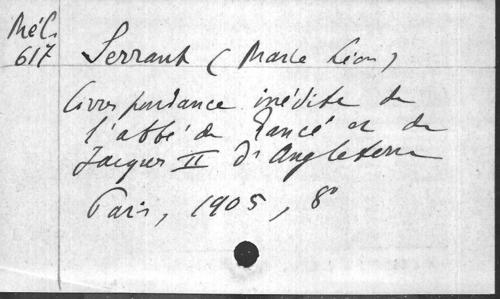 Mél.
617
Serrant (Marie Léon)
Correspondance inédite de
l'abbé de Rancé et de
Jacques II d'Angleterre
Paris, 1905, 8°